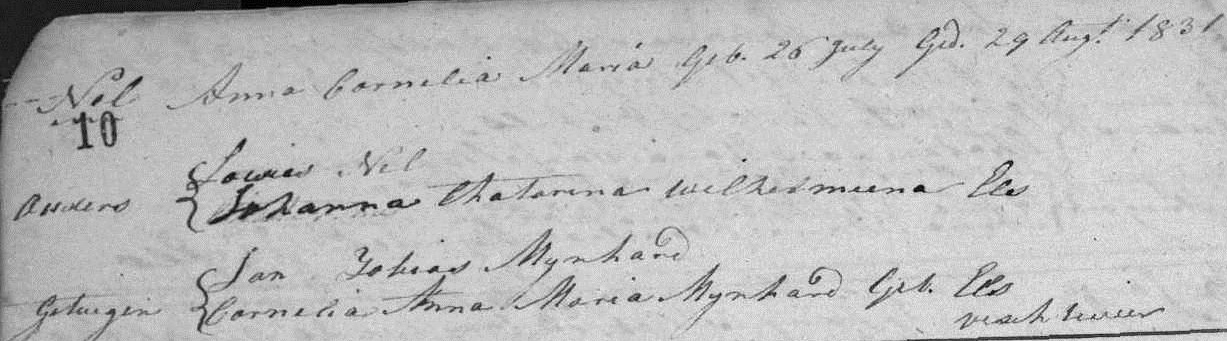 Nel Anna Cornelia Maria Geb. 26 July Ged. 29 Augt. 1831
10
Louies Nel
Ouders Johanna Chatarina wilhelmiena Els
Jan Tobias Mynhard
Getuigen Cornelia Anna Maria Mynhard Geb. Els
visch rivier